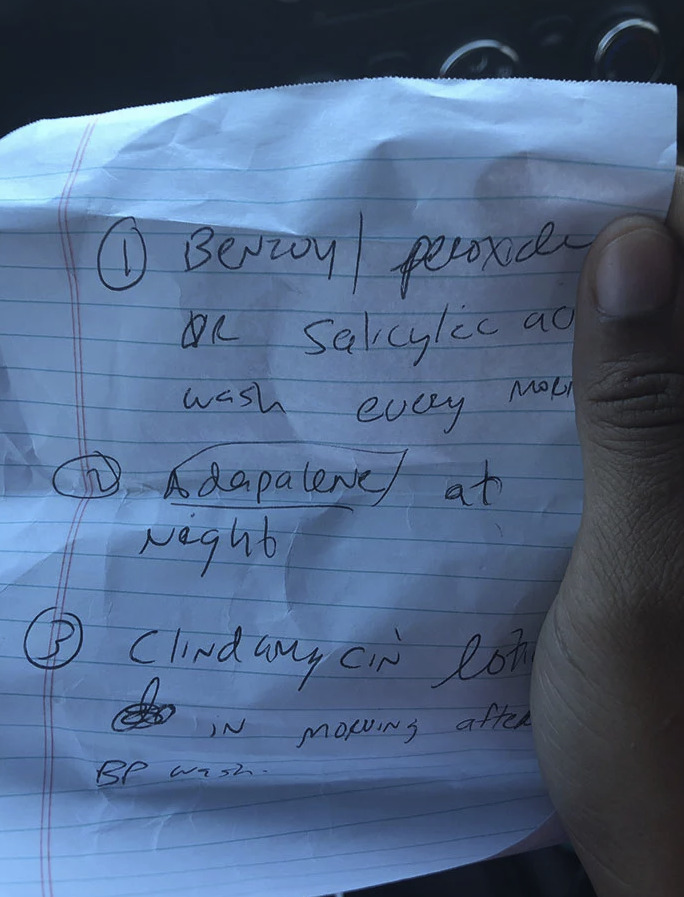 ① Benzoyl peroxide
OR Salicylic ac
wash every morn
② Adapalene at
Night
③ Clindamycin loti
in morning after
BP wash.